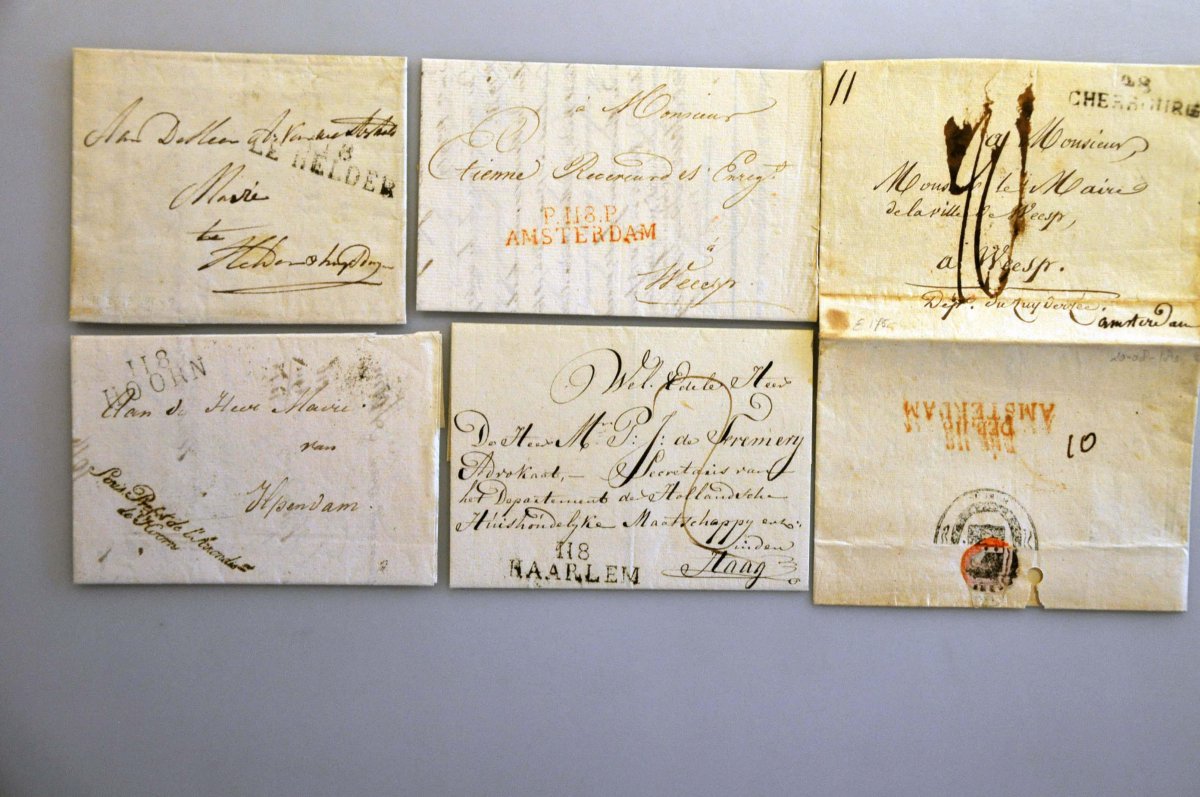 Aan De Heer
118
LE HELDER
Mairie
te
à Monsieur
Etienne Receveur des Enreg.t
P.118.P.
AMSTERDAM
à
Weesp.
11
48
CHERBOURG
a Monsieur,
Mons le Maire
de la ville de Weesp,
a Weesp.
Dep.t du Zuyderzée.
amsterdam
E 175
118
HOORN
Aan de Heer Maire
van
Ilpendam.
Sous Préfet de l'
de Hoorn
Wel Edele Heer
De Heer Mr. P: J: de Fremery
Advokaat, Secretaris van
het Departement der Hollandsche
Huishoudelyke Maatschappy enz:
in den
Haag
118
HAARLEM
AMSTERDAM
10